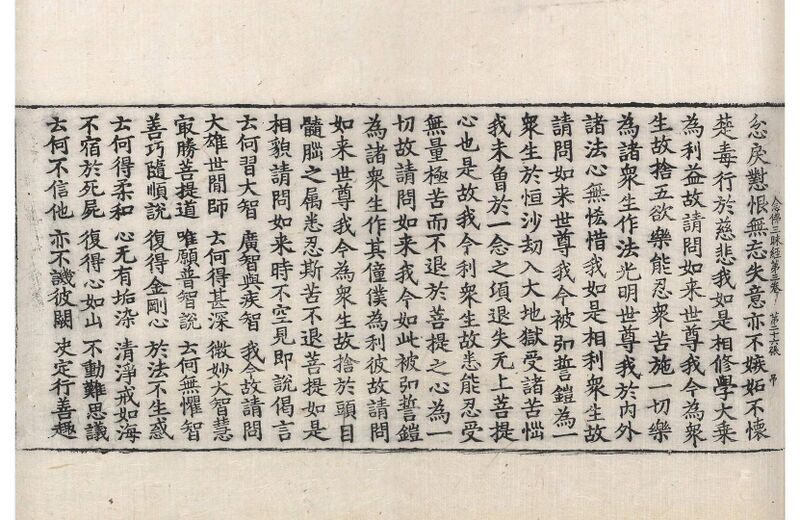 忿戾懟恨無忘失意亦不嫉妬不懷
念佛三昧経第三卷 第二十六張 弔
楚毒行於慈悲我如是相修學大乗
為利益故請問如来世尊我今為衆
生故捨五欲樂能忍衆苦施一切樂
為諸衆生作法光明世尊我於内外
諸法心無恡惜我如是相利衆生故
請問如来世尊我今被弘誓鎧為一
衆生於恒沙劫入大地獄受諸苦惱
我未曾於一念之頃退失无上菩提
心也是故我今利衆生故悉能忍受
無量極苦而不退於菩提之心為一
切故請問如来我今如此被弘誓鎧
為諸衆生作其僮僕為利彼故請問
如来世尊我今為衆生故捨於頭目
髓腦之属悉忍斯苦不退菩提如是
相貌請問如来時不空見即說偈言
云何習大智 廣智與疾智 我今故請問
大雄世間師 云何得甚深 微妙大智慧
冣勝菩提道 唯願普智說 云何無懼智
善巧隨順說 復得金剛心 於法不生惑
云何得柔和 心无有垢染 清淨戒如海
不宿於死屍 復得心如山 不動難思議
云何不信他 亦不譏彼闕 史定行善趣